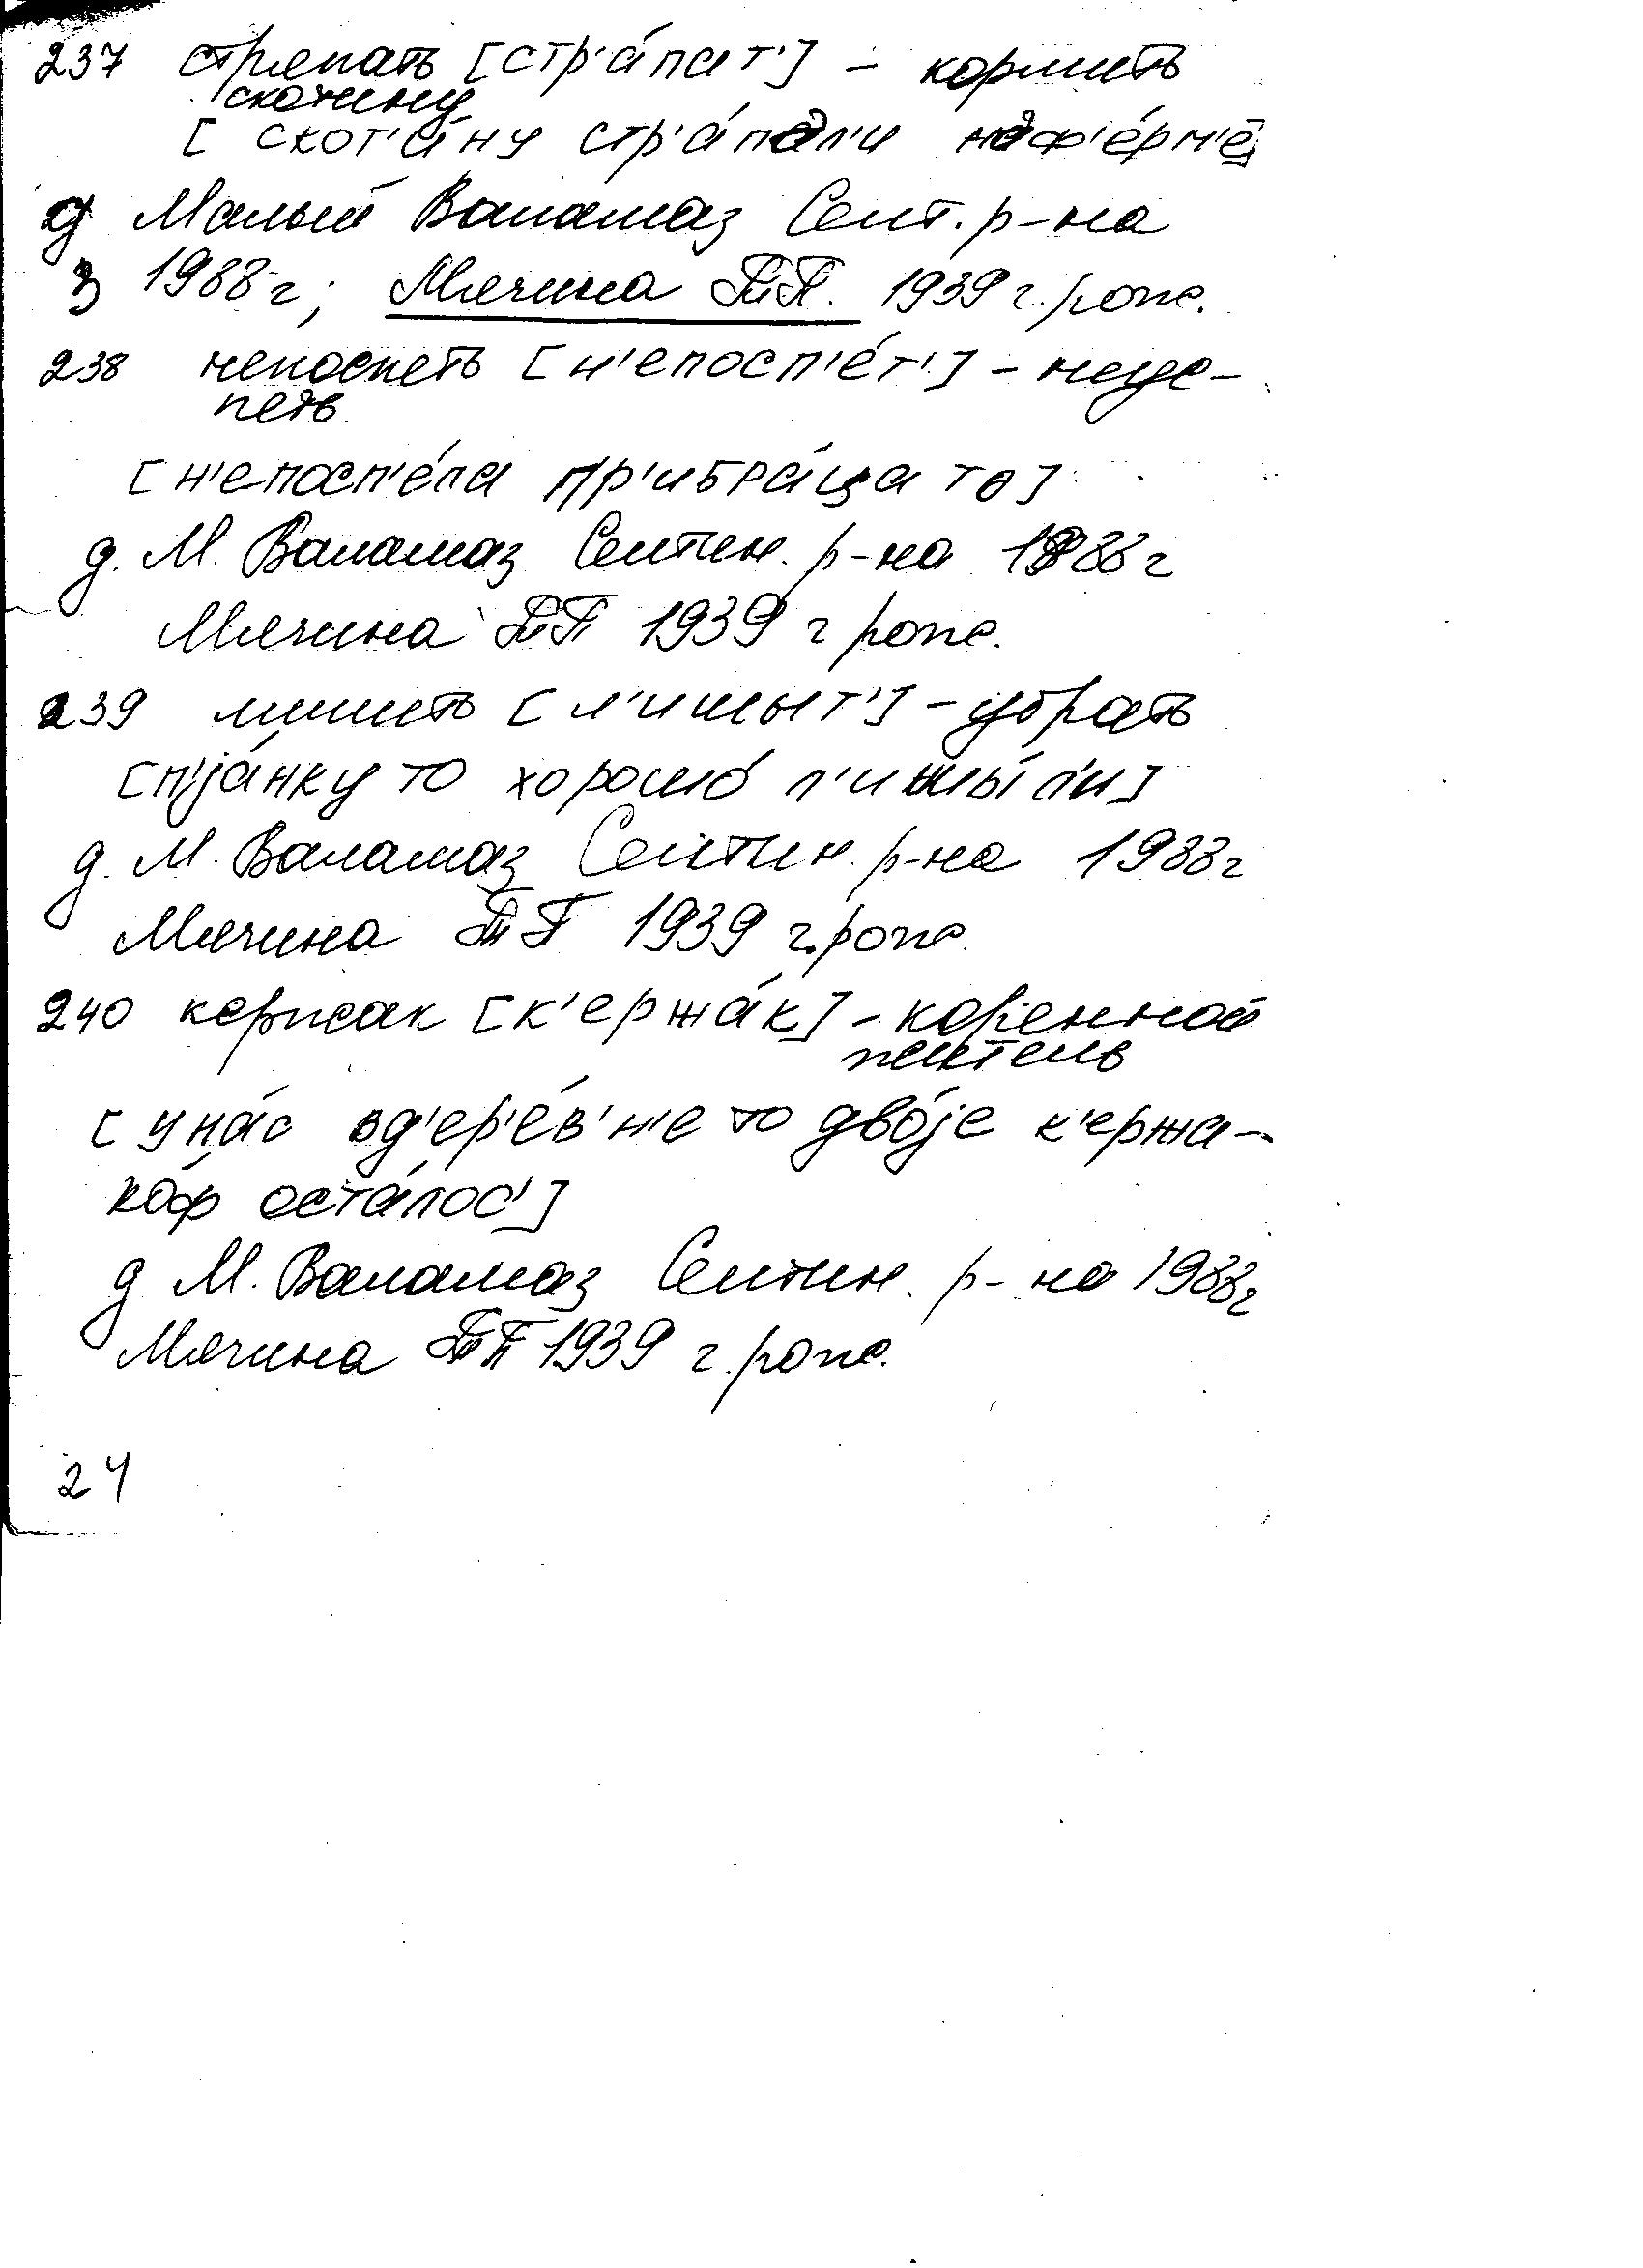 237 стряпать [стр'а́пат'] – кормить
скотину
[ скот'и́ну стр'а́пал'и наф'е́рм'е]
д Малый Валамаз Селт. р-на
1988 г; Мячина Т.П. 1939 г. рожд.
238 непоспеть [н'епосп'е́т'] – неус-
петь
[н'епосп'е́ла пр'ибра́ца то]
д. М. Валамаз Селтин. р-на 1988 г
Мячина ТП 1939 г рожд.
239 лишить [л'ишыт'] – убрать
[п'jа́нку то хорошо́ л'ишы́л'и]
д. М. Валамаз Селтин. р-на 1988 г
Мячина ТП 1939 г. рожд.
240 кержак [к'ержа́к] – коренной
житель
[у на́с вд'ер'е́в'н'е то дво́jе к'ержа-
ко́ф оста́лос']
д М. Валамаз Селтин. р-на 1988 г
Мячина ТП 1939 г. рожд.
24